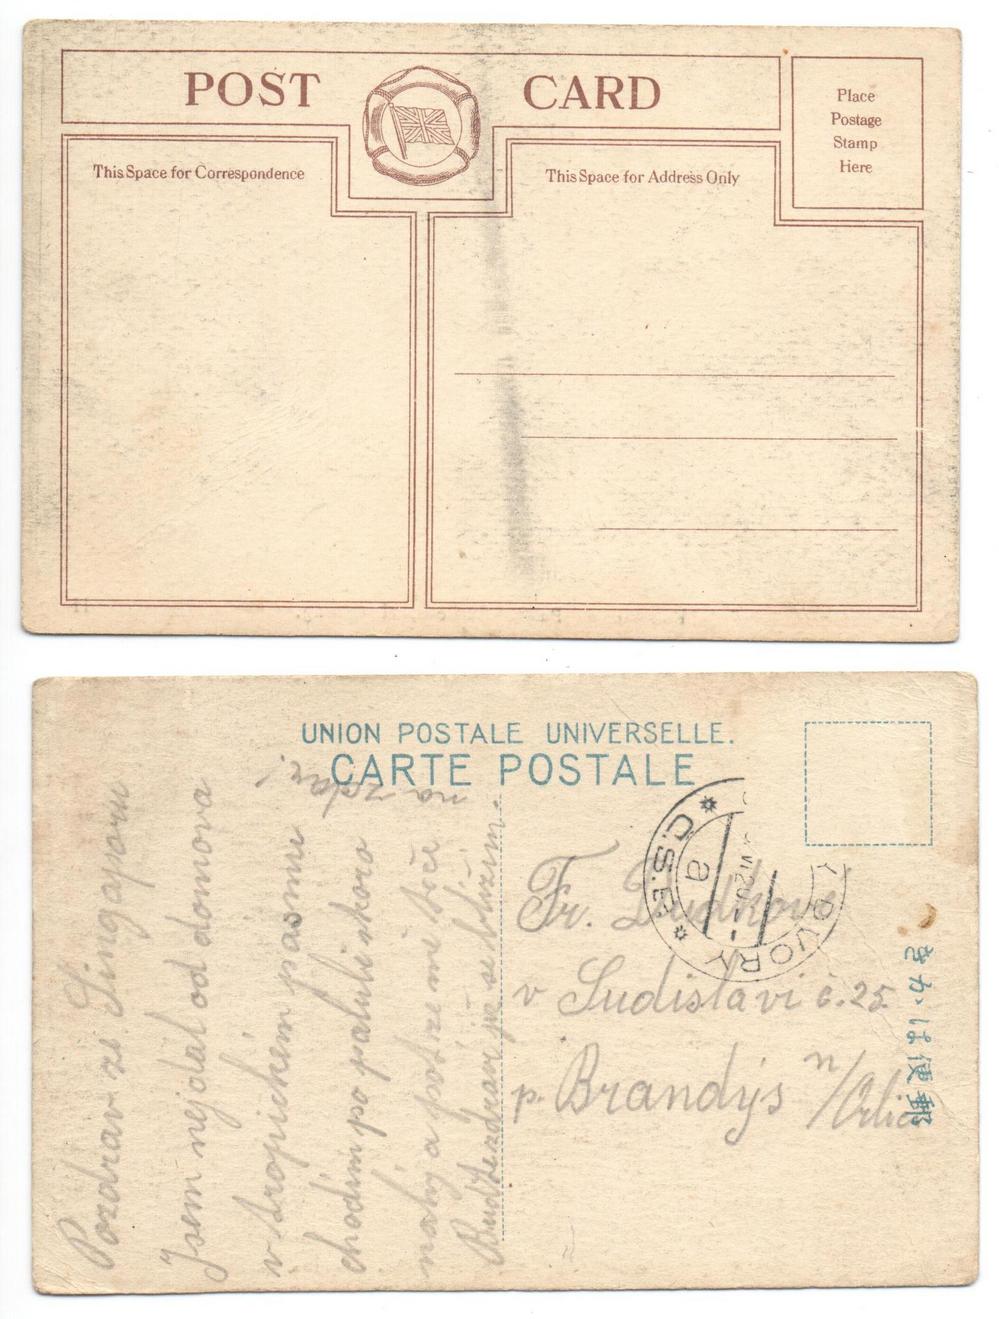 POST CARD
This Space for Correspondence
This Space for Address Only
Place
Postage
Stamp
Here
UNION POSTALE UNIVERSELLE.
CARTE POSTALE
Pozdrav ze Singaporu
Jsem nejdál od domova
v tropickém pásmu
chodím po palubě skoro
nahý a pot ze mě teče
Buďte zdrávi již se blížím.
na zdar!
C.S.P.
a
Fr. Dudkovi
v Sudislavi č. 25.
p. Brandýs n/Orlic
きがは便郵